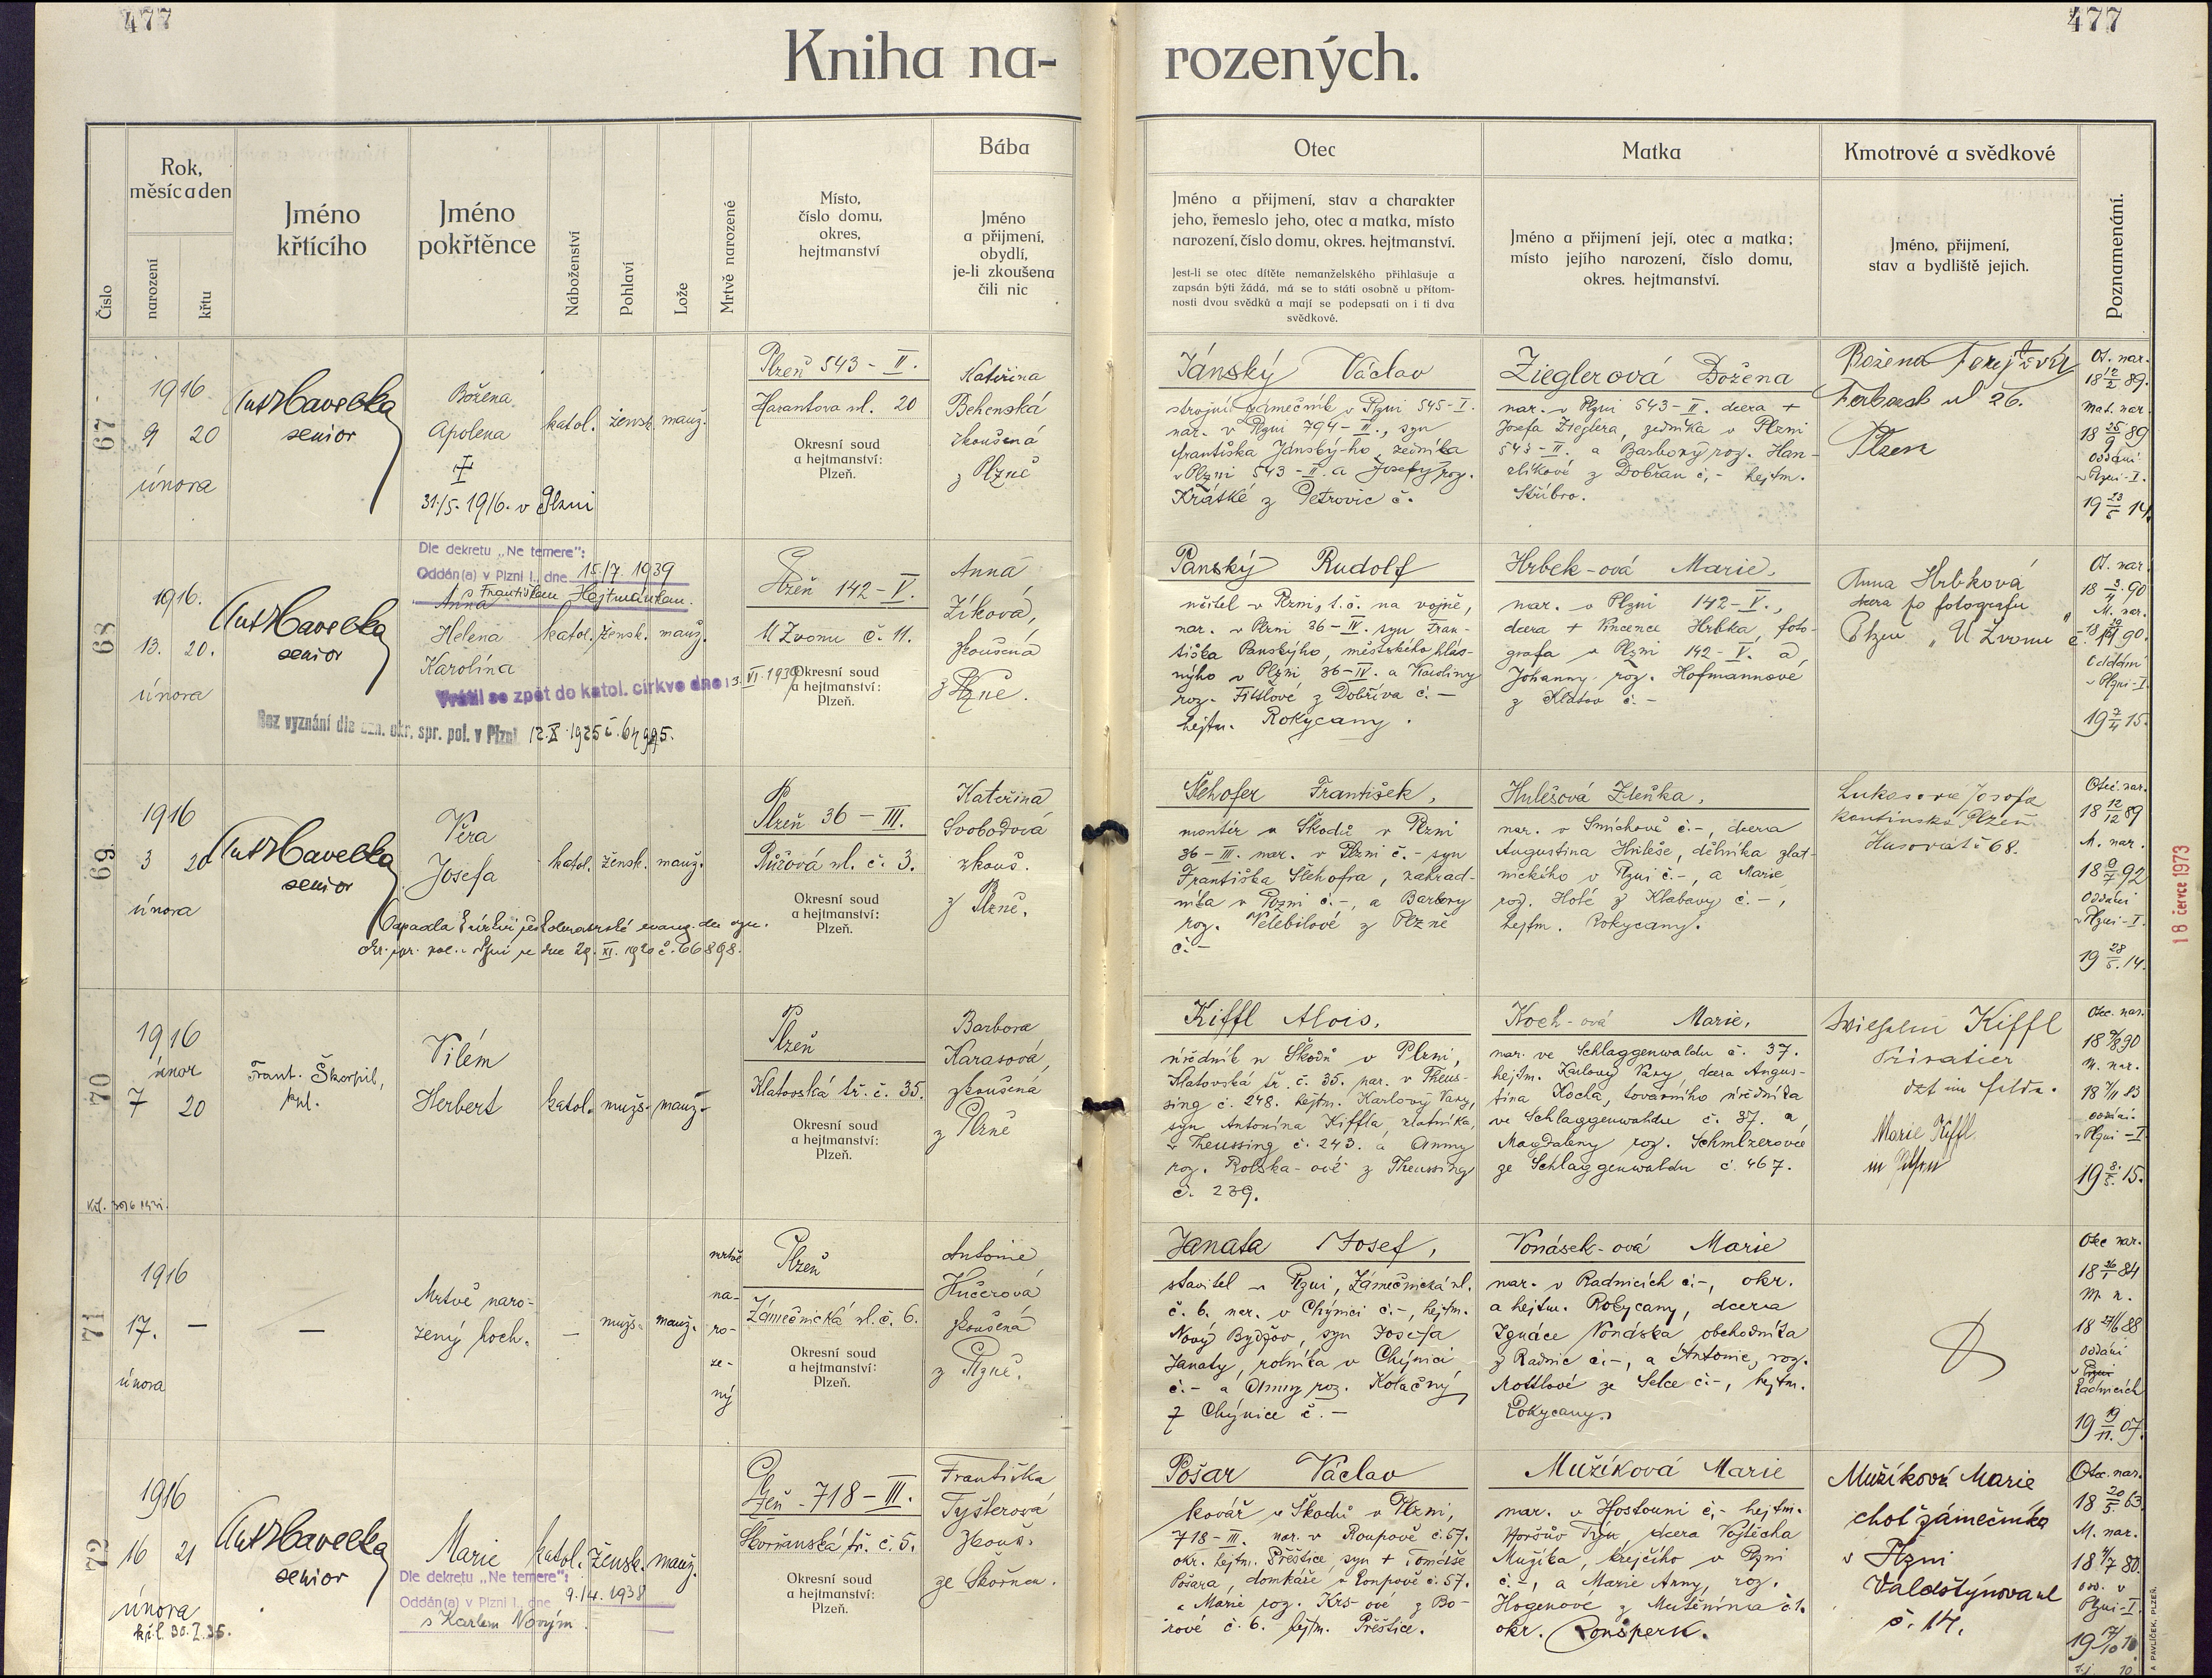 477
477
Kniha na-
rozených.
Číslo
Rok,
měsíc a den
narození
křtu
Jméno
křtícího
Jméno
pokřtěnce
Náboženství
Pohlaví
Lože
Mrtvě narozené
Místo,
číslo domu,
okres,
hejtmanství
Bába
Jméno
a přijmení,
obydlí,
je-li zkoušena
čili nic
Otec
Jméno a přijmení, stav a charakter
jeho, řemeslo jeho, otec a matka, místo
narození, číslo domu, okres. hejtmanství.
Jest-li se otec dítěte nemanželského přihlašuje a
zapsán býti žádá, má se to státi osobně u přítom-
nosti dvou svědků a mají se podepsati on i ti dva
svědkové.
Matka
Jméno a přijmení její, otec a matka;
místo jejího narození, číslo domu,
okres. hejtmanství.
Kmotrové a svědkové
Jméno, přijmení,
stav a bydliště jejich.
Poznamenání.
67
1916
9 20
února
Ant Havelka
senior
Božena
Apolena
31./5. 1916. v Plzni
katol. žensk. manž.
Plzeň 543 - II.
Harantova ul. 20
Okresní soud
a hejtmanství:
Plzeň.
Kateřina
Behenská
zkoušená
z Plzně
Jánský Václav
strojní zámečník v Plzni 545 - I.
nar. v Plzni 794 - II., syn
Františka Jánský-ho, zedníka
v Plzni 543 - II. a Josefy roz.
Krátké z Petrovic č.
Zieglerová Božena
nar. v Plzni 543 - II. dcera +
Josefa Zieglera, zedníka v Plzni
543 - II. a Barbory roz. Han-
zlíkové z Dobřan č. - hejtm.
Stříbro.
Božena
ul 26.
Plzeň
Ot. nar.
18 12/2 89.
Mat. nar.
18 25/9 89
oddáni
v Plzni - I.
19 23/5 14.
68
1916.
13. 20.
února
Ant Havelka
senior
Dle dekretu „Ne temere":
Oddán(a) v Plzni I., dne 15/7 1939
s Františkem Hejtmánkem.
Anna
Helena
Karolína
katol. žensk. manž.
Vrátil se zpět do katol. církve dne 13. VI. 1939
Bez vyznání dle ozn. okr. spr. pol. v Plzni 12. X. 1925 č. 64995.
Plzeň 142 - V.
U Zvonu č. 11.
Okresní soud
a hejtmanství:
Plzeň.
Anna
Zíková,
zkoušená
z Plzně.
Panský Rudolf
učitel v Plzni, t. č. na vojně,
nar. v Plzni 36 - IV. syn Fran-
tiška Panskýho, městského hlás-
ného v Plzni, 36 - IV. a Karoliny
roz. Fitšlové z Dobříva č. -
hejtm. Rokycany.
Hrbek-ová Marie,
nar. v Plzni 142 - V.,
dcera + Vincence Hrbka, foto-
grafa v Plzni 142 - V. a
Johanny roz. Hofmannové
z Klatov č. -
Anna Hrbková
dcera po fotografu
Plzeň „U Zvonu"
Ot. nar.
18 3/4 90
M. nar.
Oddáni
v Plzni - I
19 7/4 15.
69
1916
3 20
února
Ant Havelka
senior
Věra
Josefa
katol. žensk. manž.
Odpadla k církvi českobratrské evang. dle ozn.
okr. spr. pol. v Plzni ze dne 29. XI. 1920 č. 66898.
Plzeň 36 - III.
Růžová ul. č. 3.
Okresní soud
a hejtmanství:
Plzeň.
Kateřina
Svobodová
zkouš.
z Plzně.
Šlehofer František,
montér u Škodů v Plzni
36 - III. nar. v Plzni č. - syn
Františka Šlehofra, zahrad-
níka v Plzni č. -, a Barbory
roz. Velebilové z Plzně
č. -
Hulešová Zdeňka,
nar. v Smíchově č. -, dcera
Augustina Huleše, dělníka zlat-
nického v Plzni č. -, a Marie
roz. Holé z Klabavy č. -,
hejtm. Rokycany.
Lukesova Josefa
Plzeň
Husova tř. 68.
Otec. nar.
18 12/12 89
M. nar.
18 9/7 92
oddáni
v Plzni - I.
19 28/5. 14.
18 červce 1973
70
1916
únor
7 20
Frant. Škorpil,
kpl.
Vilém
Herbert
katol. mužs. manž.
Plzeň
Klatovská tř. č. 35.
Okresní soud
a hejtmanství:
Plzeň.
Barbora
Karasová,
zkoušená
z Plzně
Kiffl Alois,
úředník u Škodů v Plzni,
Klatovská tř. č. 35. nar. v Theus-
sing č. 248. hejtm. Karlovy Vary,
syn Antonína Kiffla, zlatníka,
v Theussing č. 243. a Anny
roz. Rolska-ové z Theussing
č. 239.
Koch-ová Marie,
nar. ve Schlaggenwaldu č. 37.
hejtm. Karlovy Vary dcera Augus-
tina Kocha, továrního úředníka
ve Schlaggenwaldu č. 37. a
Magdaleny roz. Schmlzerové
ze Schlaggenwaldu č. 467.
Wilhelm Kiffl
Privatier
dzt im Felde.
Marie Kiffl.
in Pilsen
Otec. nar.
M. nar.
oddáni
v Plzni - I
71
1916
17. -
února
-
Mrtvě naro-
zený hoch.
-
mužs. manž.
mrtvě
na-
ro-
ze-
ný
Plzeň
Zámečnická ul. č. 6.
Okresní soud
a hejtmanství:
Plzeň.
Antonie
Kučerová
zkoušená
z Plzně.
Janata Josef,
stavitel v Plzni, Zámečnická ul.
č. 6. nar. v Chýnici č. -, hejtm.
Nový Bydžov, syn Josefa
Janaty, rolníka v Chýnici
č. - a Anny roz. Kolačný
z Chýnice č. -
Vonásek-ová Marie
nar. v Radnicích č. -, okr.
a hejtm. Rokycany, dcera
Ignáce Vonáska, obchodníka
z Radnic č. -, a Antonie, roz.
Mottlové ze Selce č. -, hejtm.
Rokycany.
Otec nar.
18 26/1 84
M. n.
18 27/6 88
oddáni
v Plzni
Radnicích
19 19/11. 07.
72
1916
16 21
února
Ant Havelka
senior
Marie
katol. žensk. manž.
Dle dekretu „Ne temere":
Oddán(a) v Plzni I., dne 9./4. 1938
s Karlem Novým
Plzeň - 718 - III.
Skvrňanská tř. č. 5.
Okresní soud
a hejtmanství:
Plzeň.
Františka
Tyšlerová
zkouš.
ze Skvrňan.
Pošar Václav
kovář u Škodů v Plzni,
718 - III. nar. v Roupově č. 57.
okr. hejtm. Přeštice, syn + Tomáše
Pošara, domkáře v Roupově č. 57.
a Marie roz. Krs-ové z Bo-
rové č. 6. hejtm. Přeštice.
Mužíková Marie
nar. v Hostouni č. - hejtm.
Horšův Týn, dcera Vojtěcha
Mužíka, krejčího v Plzni
č. -, a Marie Anny, roz.
Hogenové z Mutěnína č. 1.
okr. Ronšperk.
Mužíková Marie
choť zámečníka
v Plzni
Valdštýnova ul
č. 14.
Otec. nar.
18 20/5 63
M. nar.
odd. v
Plzni - I.
A. PAVLÍČEK, PLZEŇ.